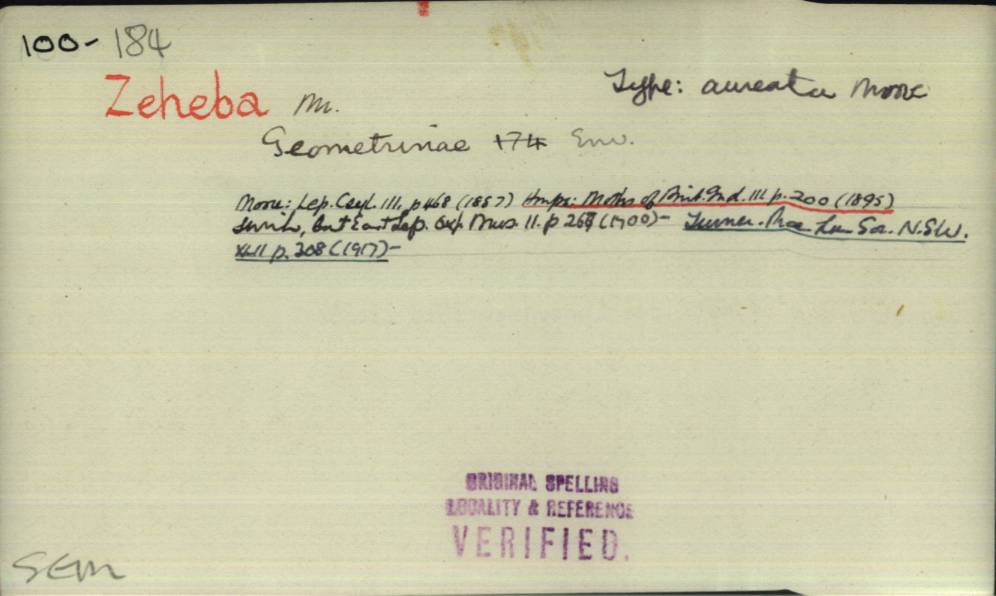 100- 184
Zeheba M.
Type: aureata Moore
Geometrinae +74 Enn.
Moore: Lep. Ceyl. III. p 468 (1887) Hmps: Moths of Brit. Ind. III p. 200 (1895)
Swinh, Cat East Lep. Oxf. Mus. II. p 267 (1900)- Turner. Proc Lin Soc. N.S.W.
XLII p. 308 (1917)-
ORIGINAL SPELLING
LOCALITY & REFERENCE
VERIFIED.
SEM